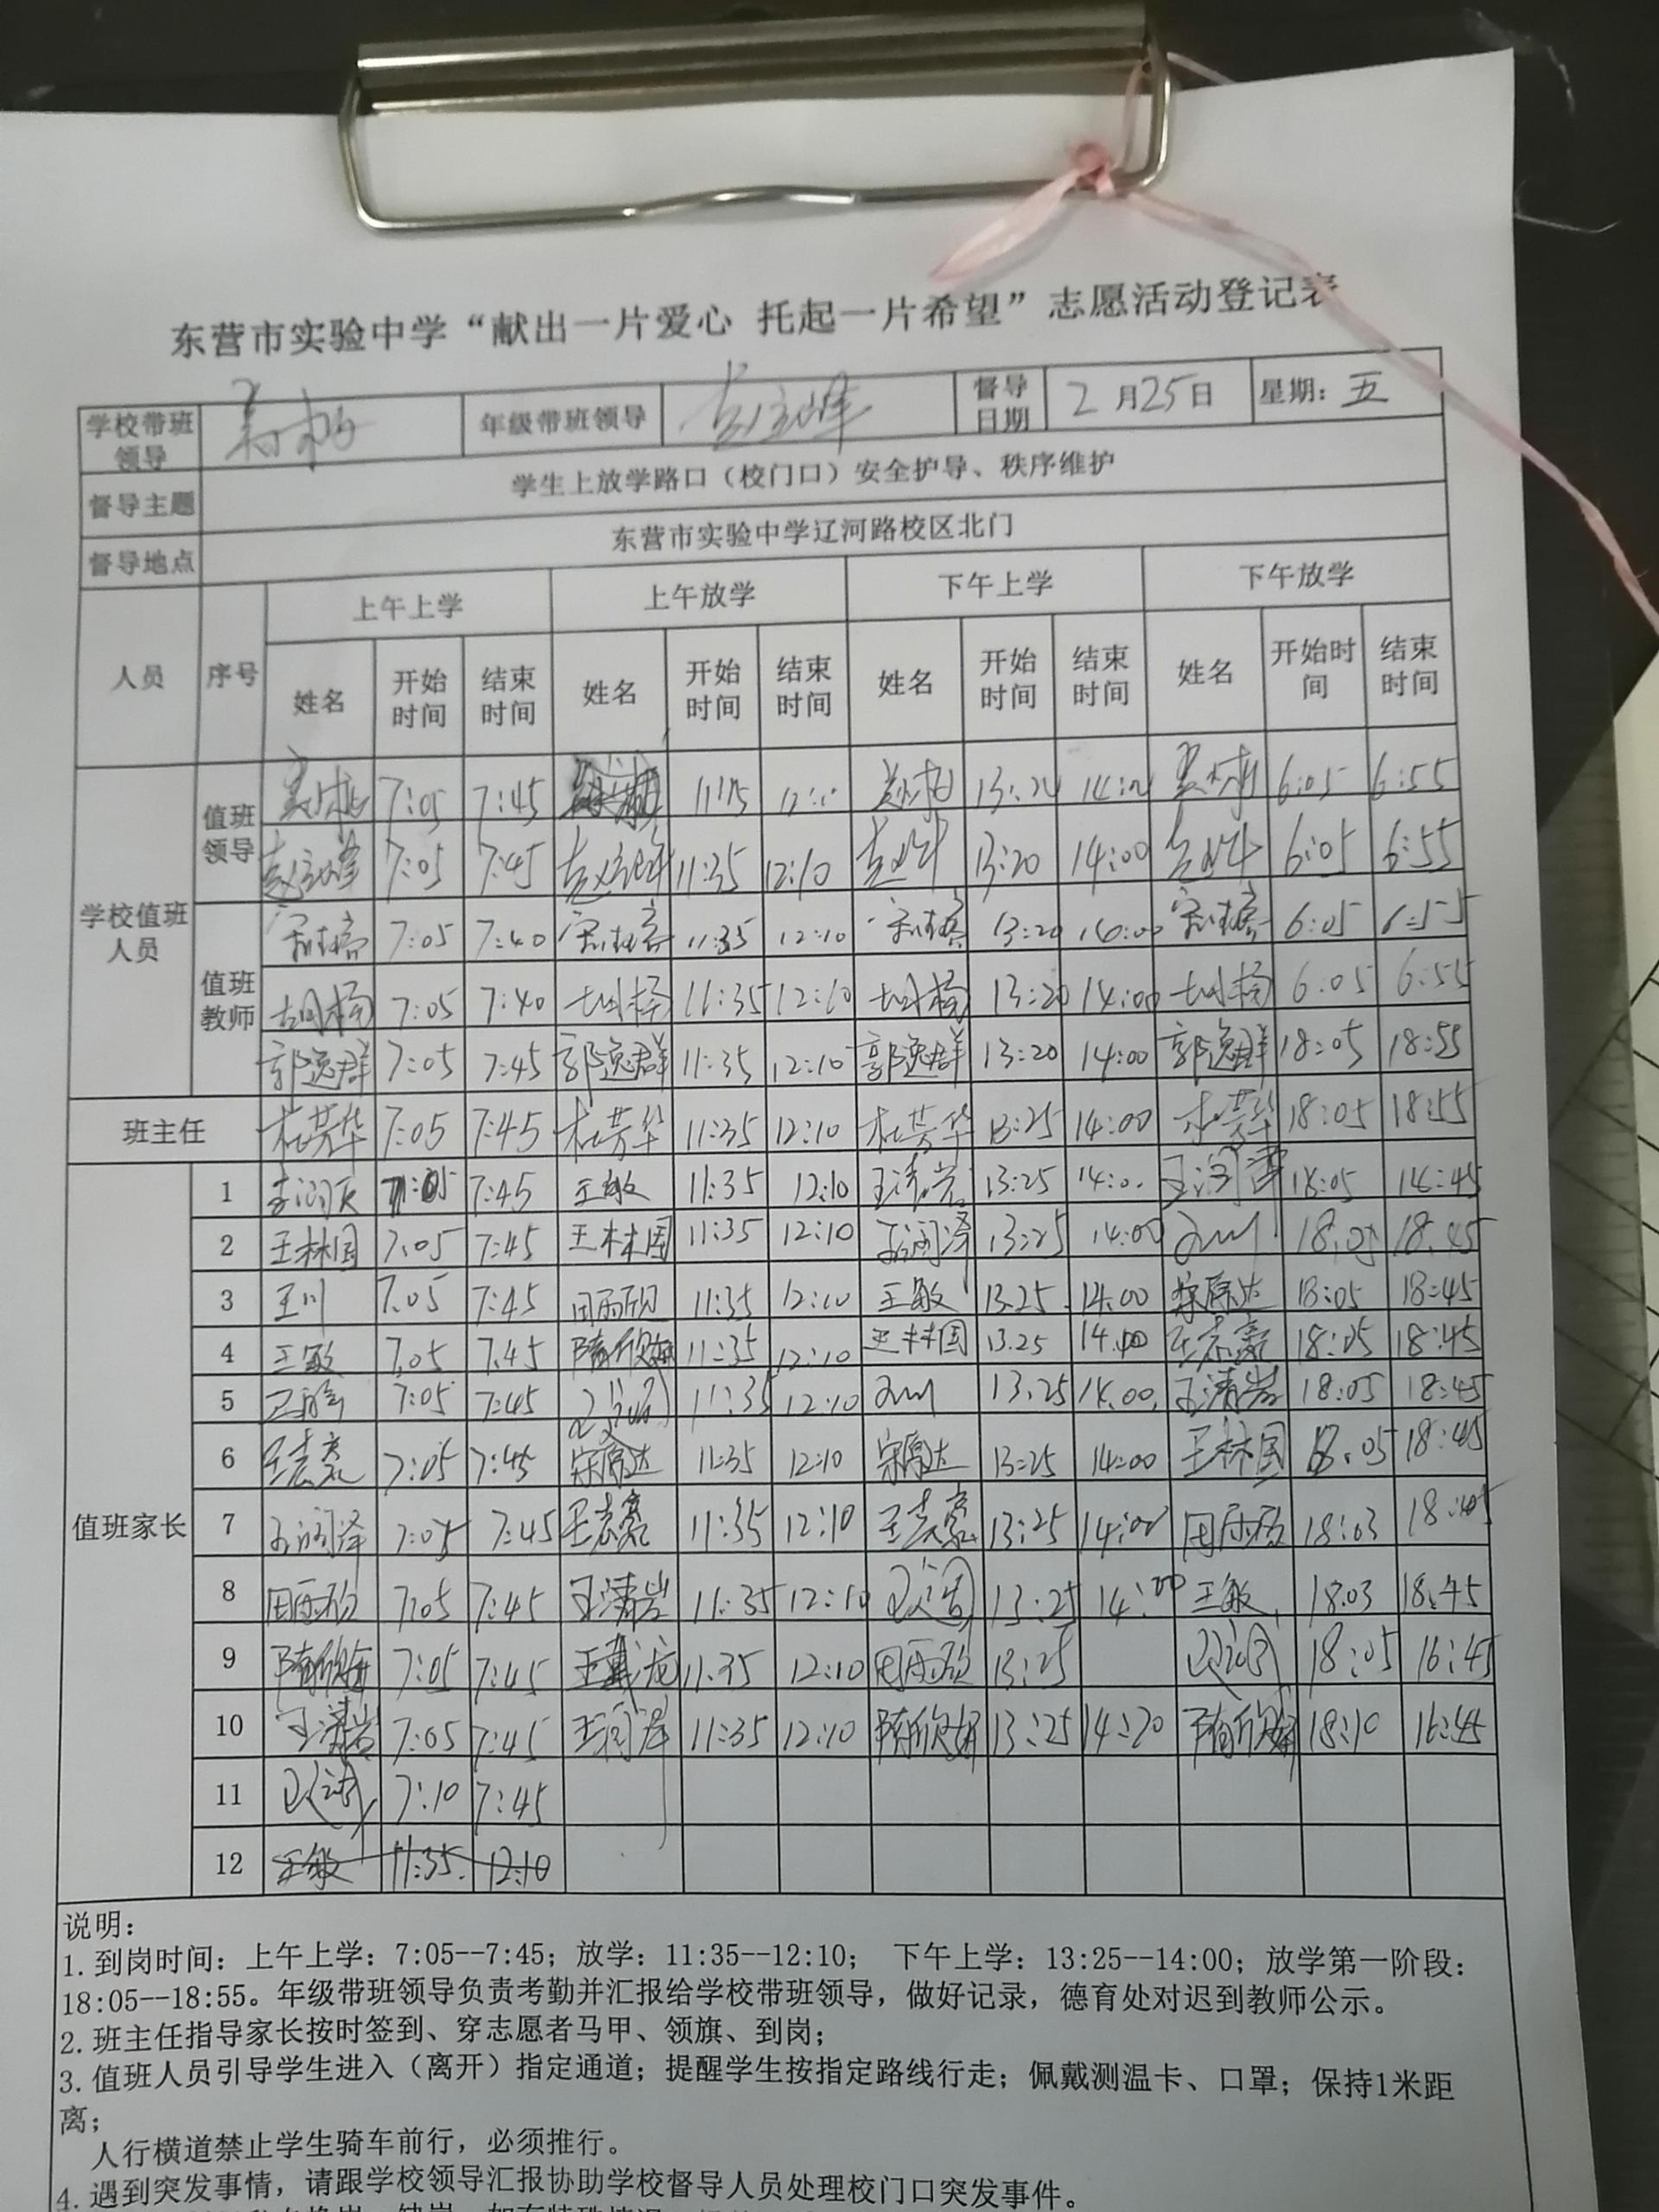 东营市实验中学“献出一片爱心 托起一片希望”志愿活动登记表
学校带班领导 年级带班领导 督导日期 2月25日 星期：五
督导主题 学生上放学路口（校门口）安全护导、秩序维护
督导地点 东营市实验中学辽河路校区北门
人员 序号 上午上学 上午放学 下午上学 下午放学
姓名 开始时间 结束时间 姓名 开始时间 结束时间 姓名 开始时间 结束时间 姓名 开始时间 结束时间
学校值班人员
值班领导 7:05 7:45 6:05 6:55
7:05 7:45 11:35 12:10 13:20 14:00 6:05 6:55
值班教师 7:05 7:40 11:35 12:10 13:20 6:05 6:55
胡杨 7:05 7:40 胡杨 11:35 12:10 胡杨 13:20 14:00 胡杨 6:05 6:55
郭逸群 7:05 7:45 郭逸群 11:35 12:10 郭逸群 13:20 14:00 郭逸群 18:05 18:55
班主任 杜芳华 7:05 7:45 杜芳华 11:35 12:10 杜芳华 13:25 14:00 杜芳华 18:05 18:55
值班家长
1 7:45 王敏 11:35 12:10 王清岩 13:25 18:05
2 王林国 7:05 7:45 王林国 11:35 12:10 13:25 14:00 18:05 18:45
3 王川 7:05 7:45 周雨欣 11:35 12:10 王敏 13:25 14:00 宋原达 18:05 18:45
4 王敏 7:05 7:45 隋欣妍 11:35 12:10 王林国 13:25 14:00 王志豪 18:05 18:45
5 7:05 7:45 11:35 12:10 13:25 14:00 王清岩 18:05 18:45
6 王志豪 7:05 7:45 宋原达 11:35 12:10 宋原达 13:25 14:00 王林国 18:05 18:45
7 7:05 7:45 王志豪 11:35 12:10 王志豪 13:25 14:00 周雨欣 18:03 18:45
8 周雨欣 7:05 7:45 王清岩 11:35 12:10 13:25 14:00 王敏 18:03 18:45
9 隋欣妍 7:05 7:45 11:35 12:10 周雨欣 13:25 18:05 16:45
10 王清岩 7:05 7:45 王润泽 11:35 12:10 隋欣妍 13:25 14:20 隋欣妍 18:10 16:45
11 7:10 7:45
12 王敏 11:35 12:10
说明：
1.到岗时间：上午上学：7:05--7:45；放学：11:35--12:10； 下午上学：13:25--14:00；放学第一阶段：
18:05--18:55。年级带班领导负责考勤并汇报给学校带班领导，做好记录，德育处对迟到教师公示。
2.班主任指导家长按时签到、穿志愿者马甲、领旗、到岗；
3.值班人员引导学生进入（离开）指定通道；提醒学生按指定路线行走；佩戴测温卡、口罩；保持1米距
离；
人行横道禁止学生骑车前行，必须推行。
4.遇到突发事情，请跟学校领导汇报协助学校督导人员处理校门口突发事件。